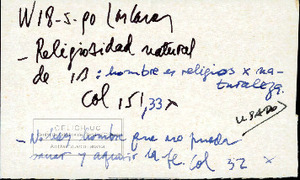 W18-5-90 Las Casas
- Religiosidad natural
de IS : hombre es religios x na-
turaleza.
Col 151,33 x
USADO
- No hay hombre que no pueda
y adquirir la fe. Col 32 x